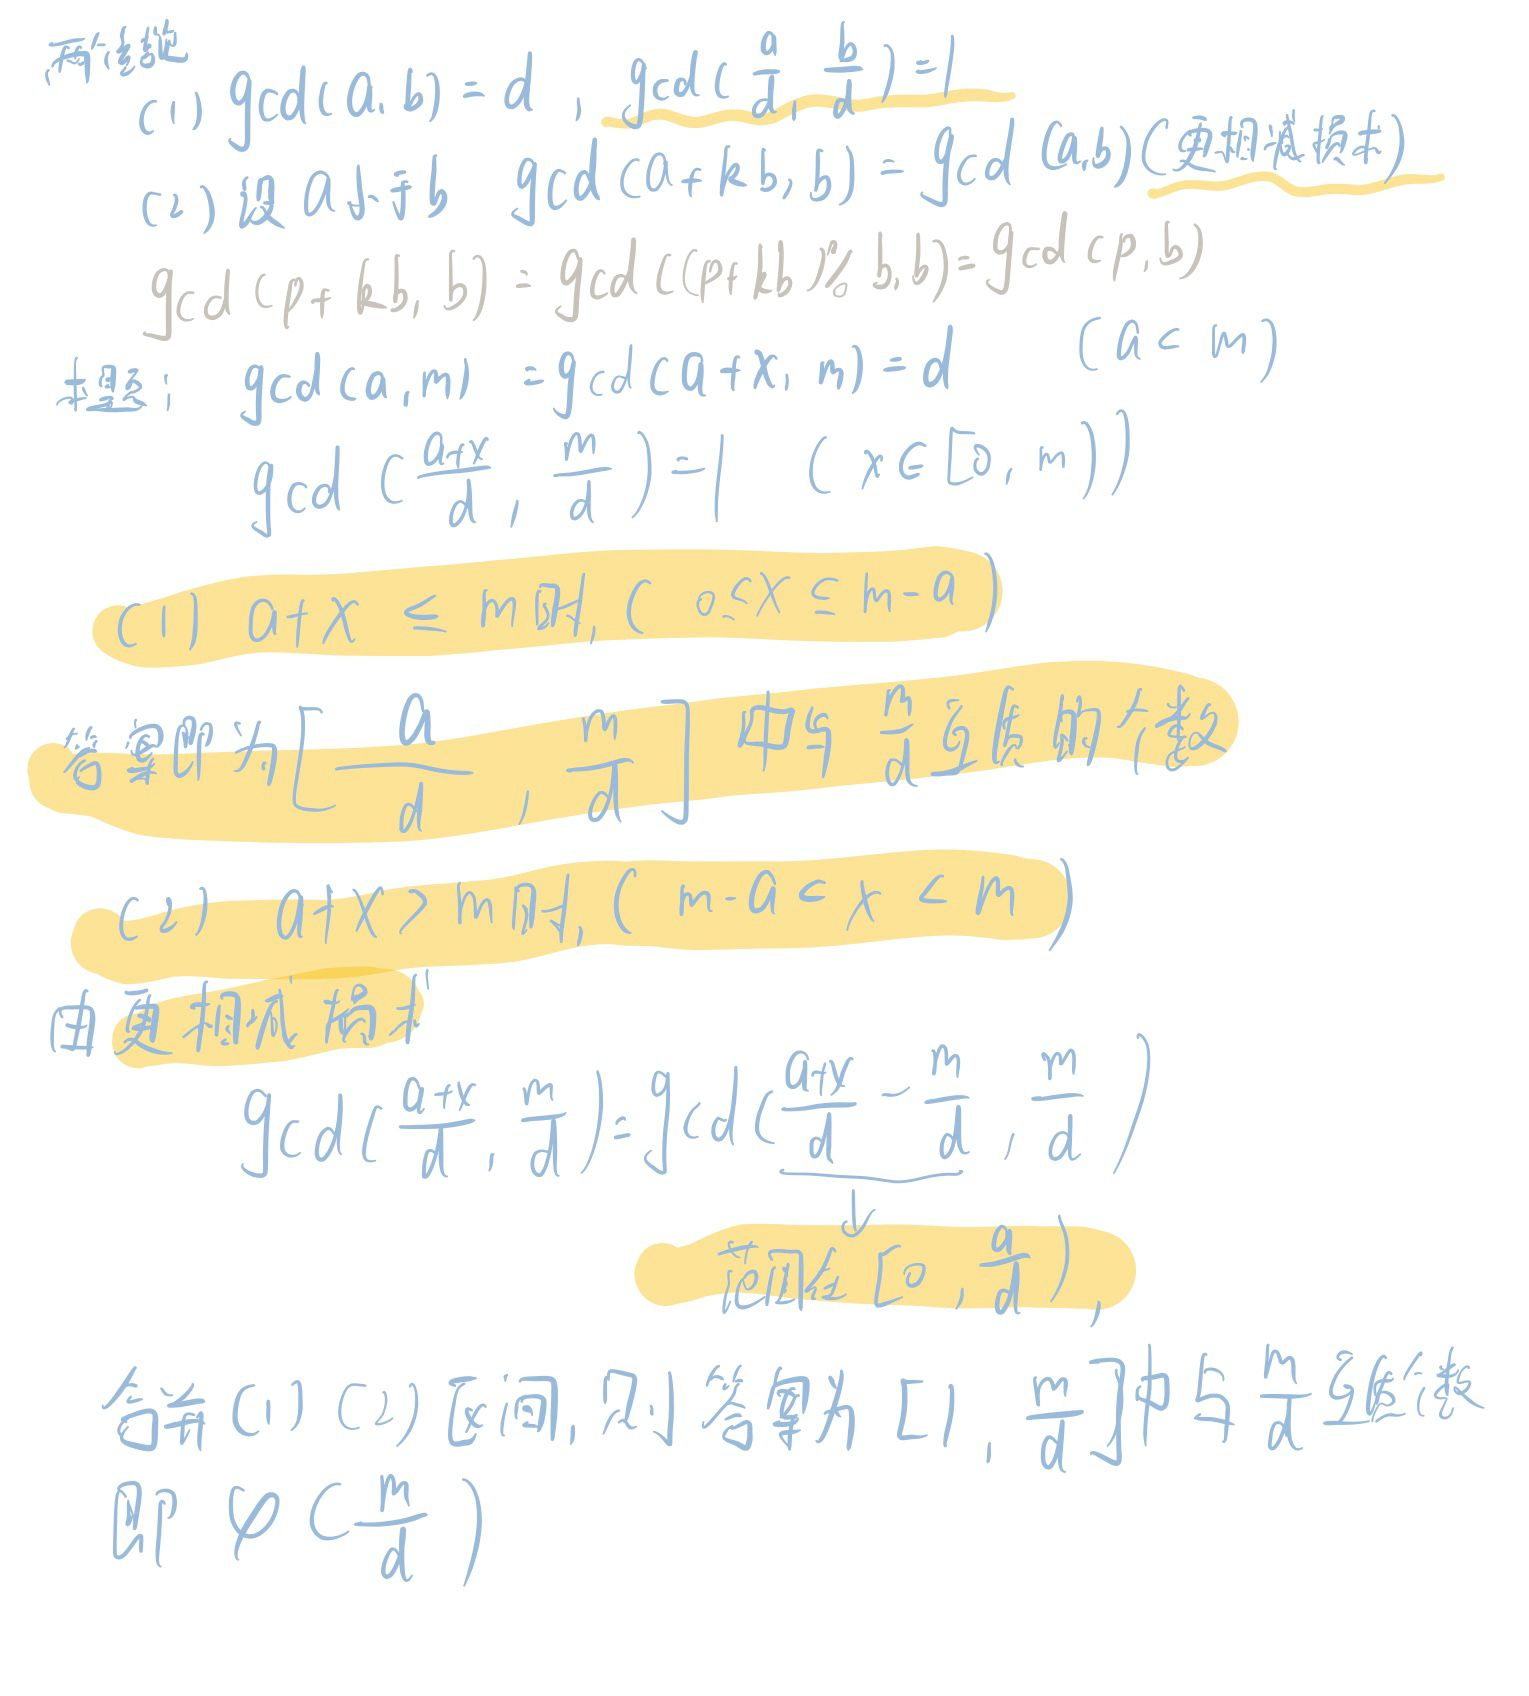 两个性质
(1) gcd(a,b)=d , gcd(a/d, b/d)=1
(2) 设a小于b gcd(a+kb,b)=gcd(a,b)(更相减损术)
gcd(p+kb,b)=gcd((p+kb)%b,b)=gcd(p,b)
本题: gcd(a,m)=gcd(a+x,m)=d (a<m)
gcd((a+x)/d, m/d)=1 (x∈[0,m))
(1) a+x≤m时,(0≤x≤m-a)
答案即为[a/d, m/d]中与m/d互质的个数
(2) a+x>m时,(m-a<x<m)
由更相减损术
gcd((a+x)/d, m/d)=gcd((a+x)/d - m/d, m/d)
↓
范围在[0, a/d),
合并(1)(2)区间,则答案为[1, m/d]中与m/d互质个数
即φ(m/d)